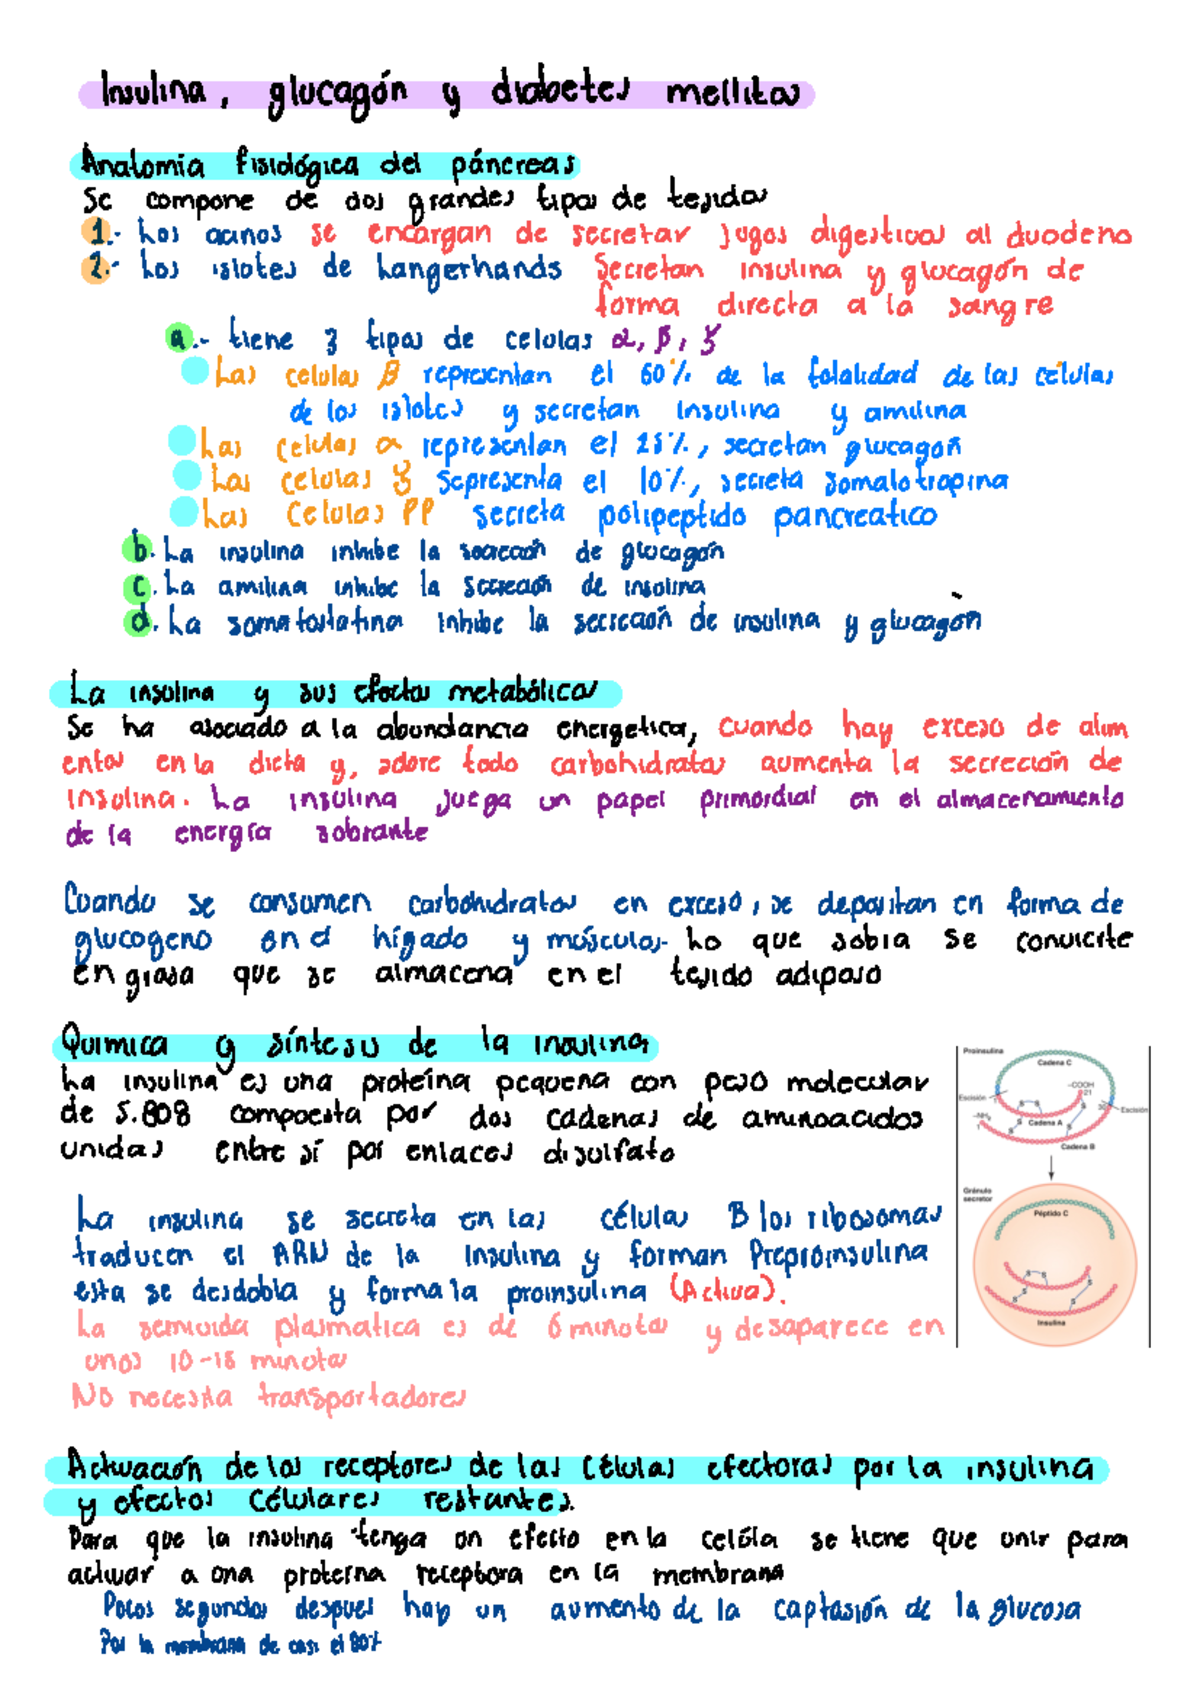 Insulina, glucagón y diabetes mellitos
Anatomia fisiológica del páncreas
Se compone de dos grandes tipos de tejidos
1.- Los acinos se encargan de secretar jugos digestivos al duodeno
2.- Los islotes de Langerhands Secretan insulina y glucagón de
forma directa a la sangre
a.- tiene 3 tipos de celulas α, β, ζ
Las celulas β representan el 60% de la totalidad de las celulas
de los islotes y secretan insulina y amilina
Las celulas α representan el 25%, secretan glucagon
Las celulas ζ sepresenta el 10%, secreta somatotropina
Las Celulas PP secreta polipeptido pancreatico
b. La insulina inhibe la secreción de glucagón
c. La amilina inhibe la secreción de insulina
d. La somatostatina inhibe la secreción de insulina y glucagón
La insulina y sus efectos metabólicos
Se ha asociado a la abundancia energetica, cuando hay exceso de alim
entos en la dieta y, sobre todo carbohidratos aumenta la secreción de
insulina. La insulina juega un papel primordial en el almacenamiento
de la energía sobrante
Cuando se consumen carbohidratos en exceso, se depositan en forma de
glucogeno en el hígado y músculos. Lo que sobra se convierte
en grasa que se almacena en el tejido adiposo
Quimica y síntesis de la insulina
La insulina es una proteína pequeña con peso molecular
de 5.808 compuesta por dos cadenas de aminoacidos
unidas entre sí por enlaces disulfato
Proinsulina
Cadena C
Escisión
-COOH
21
-NH₂
1
30
Escisión
S S
S S
S S
Cadena A
Cadena B
Gránulo
secretor
Péptido C
S S
S S
S S
Insulina
La insulina se secreta en las células B los ribosomas
traducen el ARN de la insulina y forman Preproinsulina
esta se desdobla y forma la proinsulina (Activa).
La semivida plasmatica es de 6 minutos y desaparece en
unos 10-15 minutos
No necesita transportadores
Activación de los receptores de las células efectoras por la insulina
y efectos Célulares restantes.
Para que la insulina tenga un efecto en la celúla se tiene que unir para
activar a una proteina receptora en la membrana
Pocos segundos despues hay un aumento de la captasión de la glucosa
Por la membrana de casi el 80%